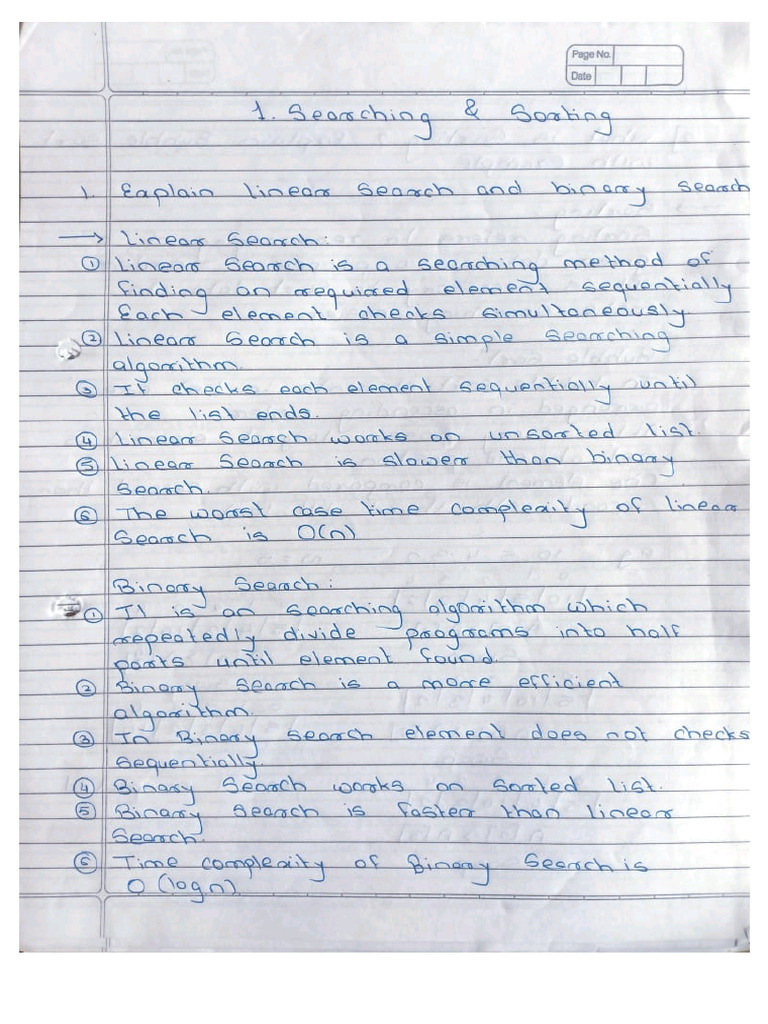 Page No.
Date
1. Searching & Sorting
1. Explain linear search and binary search
→ Linear Search:
① Linear Search is a searching method of
finding an required element sequentially
Each element checks simultaneously.
② Linear Search is a simple searching
algorithm.
③ It checks each element sequentially until
the list ends.
④ Linear Search works on unsorted list.
⑤ Linear Search is slower than binary
Search.
⑥ The worst case time complexity of linear
Search is O(n)
Binary Search:
① It is an searching algorithm which
repeatedly divide programs into half
parts until element found.
② Binary Search is a more efficient
algorithm.
③ In Binary search element does not checks
sequentially.
④ Binary Search works on sorted list.
⑤ Binary Search is faster than linear
Search.
⑥ Time complexity of Binary Search is
O (log n)